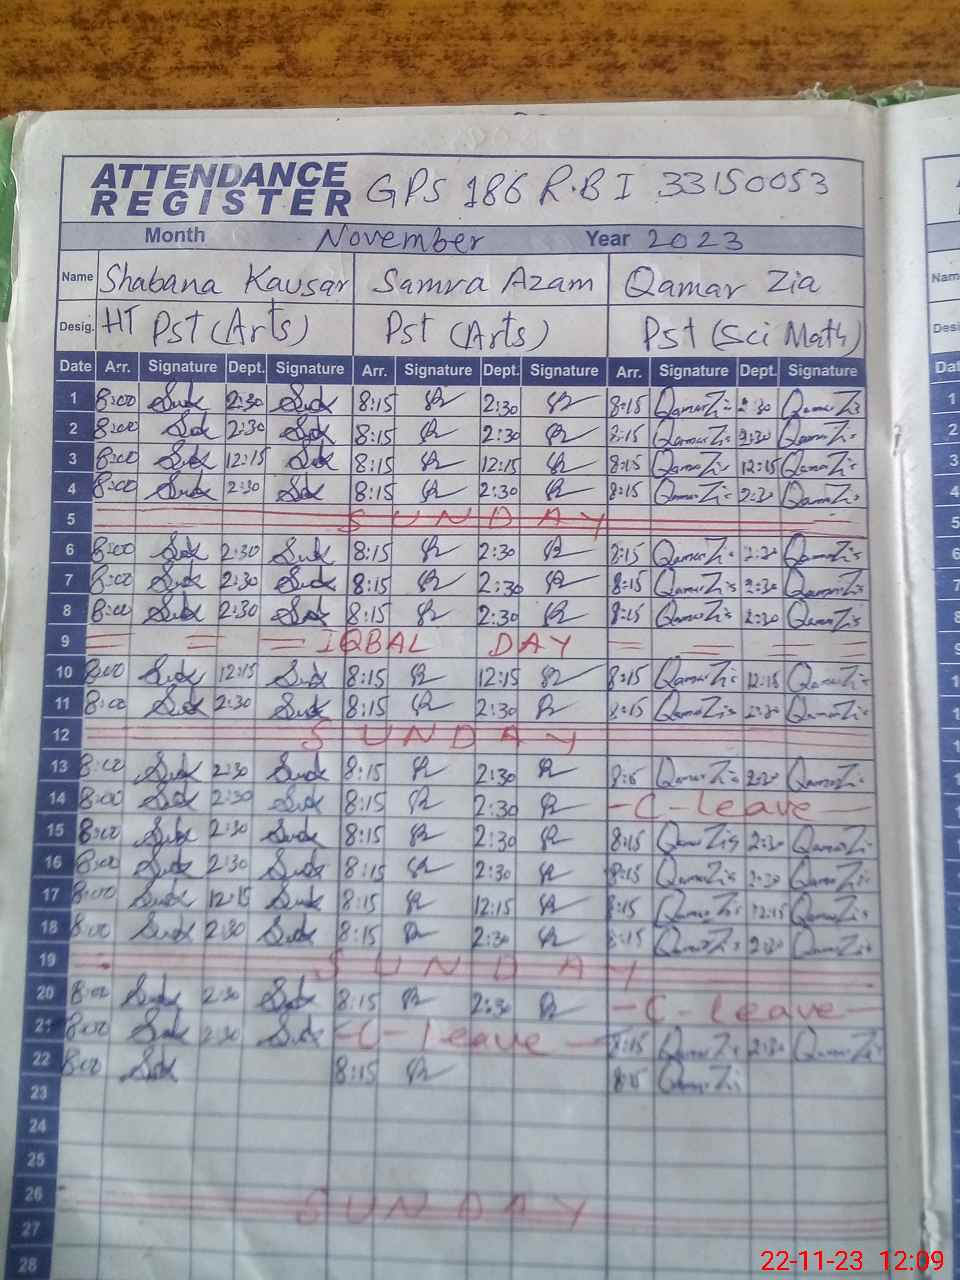 ATTENDANCE REGISTER GPS 186 R.B I 33150053
Month November Year 2023
Name Shabana Kausar Samra Azam Qamar Zia
Desig. HT Pst (Arts) Pst (Arts) Pst (Sci Math)
Date Arr. Signature Dept. Signature Arr. Signature Dept. Signature Arr. Signature Dept. Signature
1 8:00 2:30 8:15 2:30 8:15 Qamar Zia 2:30 Qamar Zia
2 8:00 2:30 8:15 2:30 8:15 Qamar Zia 2:30 Qamar Zia
3 8:00 12:15 8:15 12:15 8:15 Qamar Zia 12:15 Qamar Zia
4 8:00 2:30 8:15 2:30 8:15 Qamar Zia 2:30 Qamar Zia
5 SUNDAY
6 8:00 2:30 8:15 2:30 8:15 Qamar Zia 2:30 Qamar Zia
7 8:00 2:30 8:15 2:30 8:15 Qamar Zia 2:30 Qamar Zia
8 8:00 2:30 8:15 2:30 8:15 Qamar Zia 2:30 Qamar Zia
9 IQBAL DAY
10 8:00 12:15 8:15 12:15 8:15 Qamar Zia 12:15 Qamar Zia
11 8:00 2:30 8:15 2:30 8:15 Qamar Zia 2:30 Qamar Zia
12 SUNDAY
13 8:00 2:30 8:15 2:30 Qamar Zia 2:30 Qamar Zia
14 8:00 2:30 8:15 2:30 -C-leave-
15 8:00 2:30 8:15 2:30 8:15 Qamar Zia 2:30 Qamar Zia
16 8:00 2:30 8:15 2:30 8:15 Qamar Zia 2:30 Qamar Zia
17 8:00 12:15 8:15 12:15 8:15 Qamar Zia 12:15 Qamar Zia
18 8:00 2:30 8:15 2:30 8:15 Qamar Zia 2:30 Qamar Zia
19 SUNDAY
20 8:00 2:30 8:15 2:30 -C-leave-
21 8:00 2:30 -C-leave- 8:15 Qamar Zia 2:30 Qamar Zia
22 8:00 8:15 8:15 Qamar Zia
23
24
25
26 SUNDAY
27
28
22-11-23 12:09